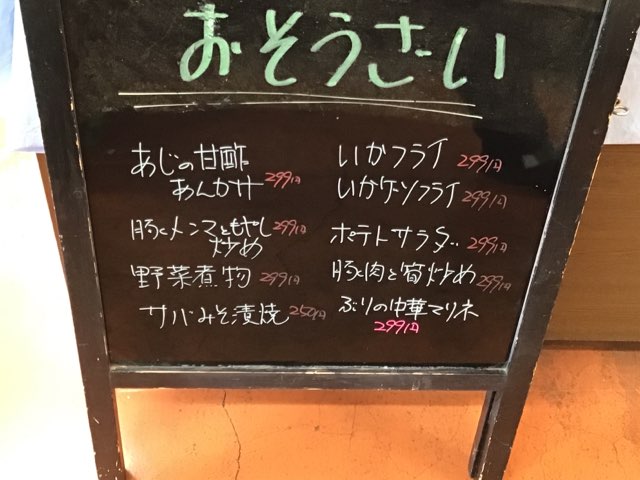 おそうざい
あじの甘酢
あんかけ 299円
豚とメンマともやし
炒め 299円
野菜煮物 299円
サバみそ漬焼 250円
いかフライ 299円
いかゲソフライ 299円
ポテトサラダ 299円
豚肉と筍炒め 299円
ぶりの中華マリネ
299円